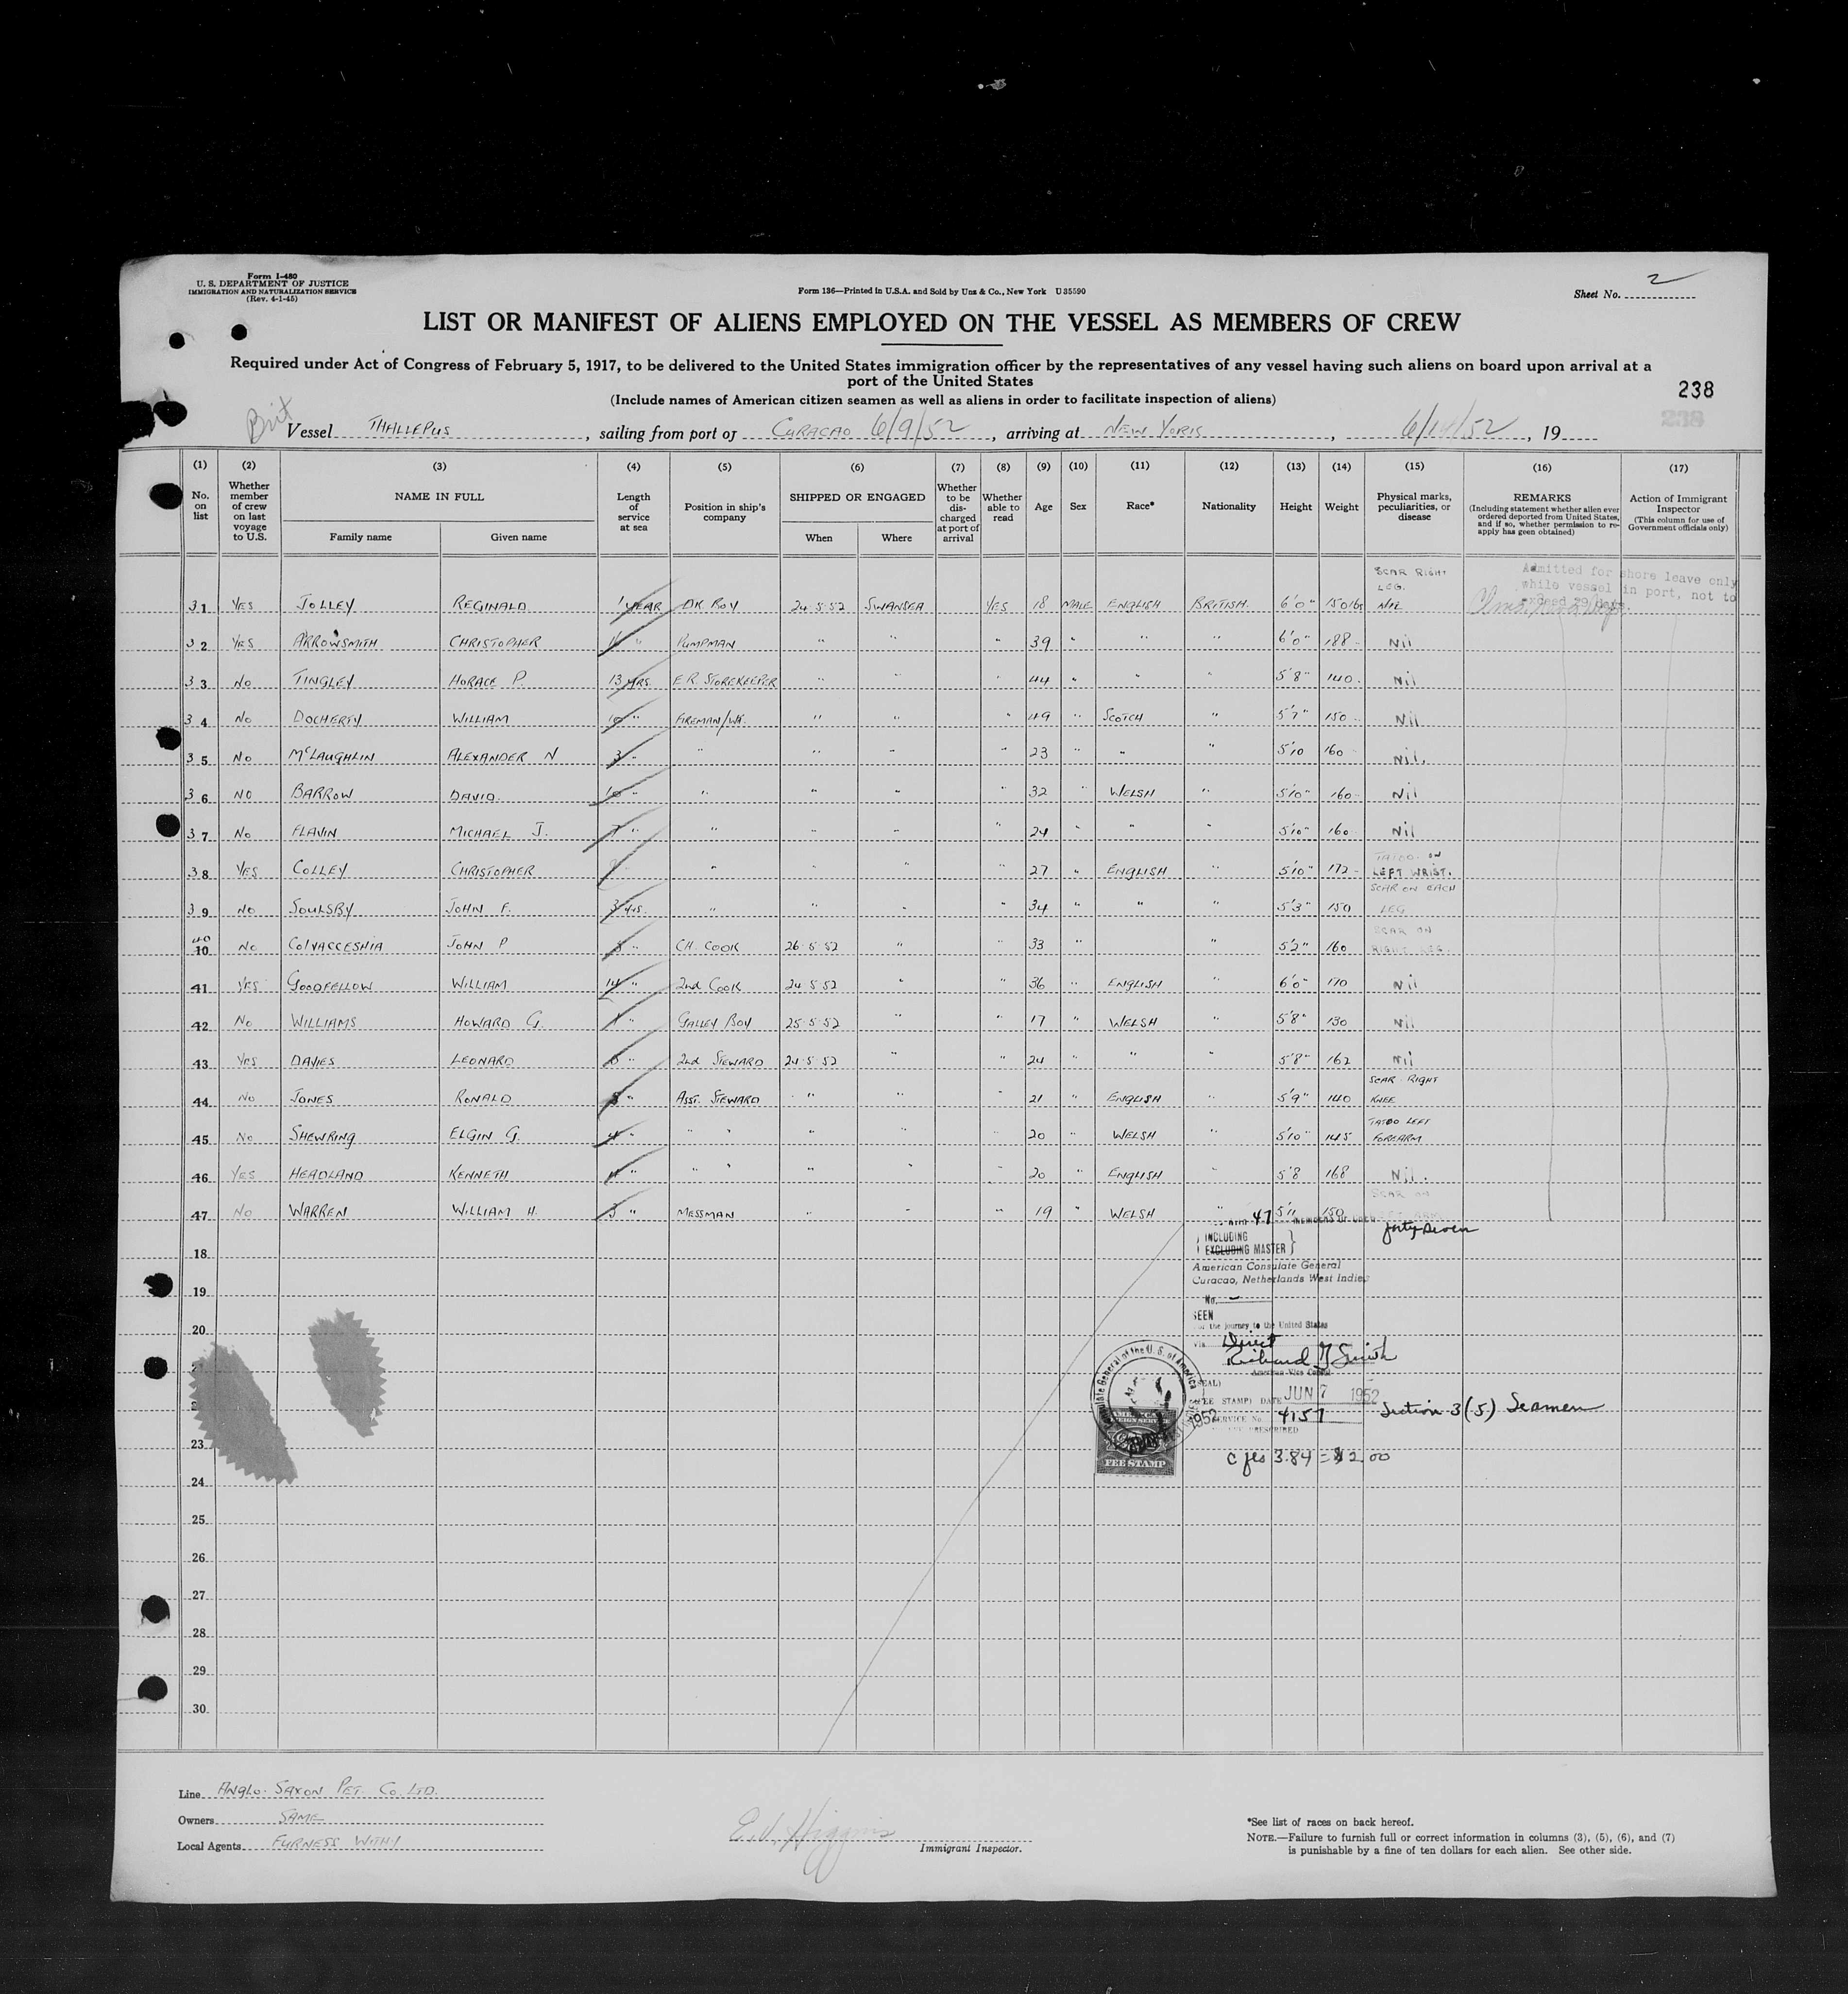 Form I-480
U. S. DEPARTMENT OF JUSTICE
IMMIGRATION AND NATURALIZATION SERVICE
(Rev. 4-1-45)
Form 136—Printed in U.S.A. and Sold by Unz & Co., New York U 35590
Sheet No. 2
LIST OR MANIFEST OF ALIENS EMPLOYED ON THE VESSEL AS MEMBERS OF CREW
Required under Act of Congress of February 5, 1917, to be delivered to the United States immigration officer by the representatives of any vessel having such aliens on board upon arrival at a
port of the United States
(Include names of American citizen seamen as well as aliens in order to facilitate inspection of aliens)
238
238
Brit
Vessel THALLEPUS, sailing from port of CURACAO 6/9/52, arriving at NEW YORK, 6/14/52, 19
(1) (2) (3) (4) (5) (6) (7) (8) (9) (10) (11) (12) (13) (14) (15) (16) (17)
No. on list
Whether member of crew on last voyage to U.S.
NAME IN FULL
Family name Given name
Length of service at sea
Position in ship's company
SHIPPED OR ENGAGED
When Where
Whether to be discharged at port of arrival
Whether able to read
Age Sex Race* Nationality Height Weight
Physical marks, peculiarities, or disease
REMARKS
(Including statement whether alien ever ordered deported from United States, and if so, whether permission to re-apply has geen obtained)
Action of Immigrant Inspector
(This column for use of Government officials only)
Admitted for shore leave only
while vessel in port, not to
exceed 29 days.
SCAR RIGHT
LEG.
31 YES JOLLEY REGINALD 1 YEAR DK BOY 24-5-52 SWANSEA YES 18 MALE ENGLISH BRITISH 6'0" 150 lbs NIL
32 YES ARROWSMITH CHRISTOPHER " PUMPMAN " " " 39 " " " 6'0" 188 Nil
33 No TINGLEY HORACE P. 13 YRS. E.R. STOREKEEPER " " " 44 " " " 5'8" 140 Nil
34 No DOCHERTY WILLIAM 10 " FIREMAN/WR. " " " 49 " SCOTCH " 5'7" 150 Nil
35 No McLAUGHLIN ALEXANDER N 3 " " " " " 23 " " " 5'10 160 Nil.
36 NO BARROW DAVID 10 " " " " " 32 " WELSH " 5'10" 160 Nil
37 No FLAVIN MICHAEL J. 7 " " " " " 24 " " " 5'10" 160 Nil
TATOO ON
38 YES COLLEY CHRISTOPHER " " " " 27 " ENGLISH " 5'10" 172 LEFT WRIST.
SCAR ON EACH
39 NO SOULSBY JOHN F. 3 YRS. " " " " 34 " " " 5'3" 150 LEG
SCAR ON
40 10 No JOHN P 8 " CH. COOK 26-5-52 " " 33 " " 5'2" 160 RIGHT LEG.
41 YES GOODFELLOW WILLIAM 14 " 2nd COOK 24 5 52 " " 36 " ENGLISH " 6'0" 170 Nil
42 No WILLIAMS HOWARD G. 1 " GALLEY BOY 25-5-52 " " 17 " WELSH " 5'8" 130 Nil
43 YES DAVIES LEONARD 6 " 2nd STEWARD 24-5-52 " " 24 " " " 5'8" 162 Nil
SCAR RIGHT
44 No JONES RONALD " ASST. STEWARD " " " 21 " ENGLISH " 5'9" 140 KNEE
TATOO LEFT
45 No SHEWRING ELGIN G. 4 " " " " " " 20 " WELSH " 5'10" 145 FOREARM
46 YES HEADLAND KENNETH " " " " " " 20 " ENGLISH " 5'8 168 Nil.
SCAR ON
47 NO WARREN WILLIAM H. 3 " MESSMAN " " " 19 " WELSH " 5'11 150 ARM
47 MEMBERS OF CREW forty seven
18
INCLUDING
EXCLUDING MASTER
American Consulate General
Curacao, Netherlands West Indies
19
No. —
SEEN
20
the journey to the United States
via Direct
Richard Smith
American Vice Consul
(SEAL)
(FEE STAMP) DATE JUN 7 1952
SERVICE No. 4157
PRESCRIBED
Section 3(5) Seamen
3.84 = $2.00
Consulate General of the U. S. of America
1952
AMERICAN
FOREIGN SERVICE
FEE STAMP
23
24
25
26
27
28
29
30
Line ANGLO-SAXON PET. CO. LTD.
Owners SAME
Local Agents FURNESS WITHY
E.V. Higgins
Immigrant Inspector.
*See list of races on back hereof.
NOTE.—Failure to furnish full or correct information in columns (3), (5), (6), and (7)
is punishable by a fine of ten dollars for each alien. See other side.